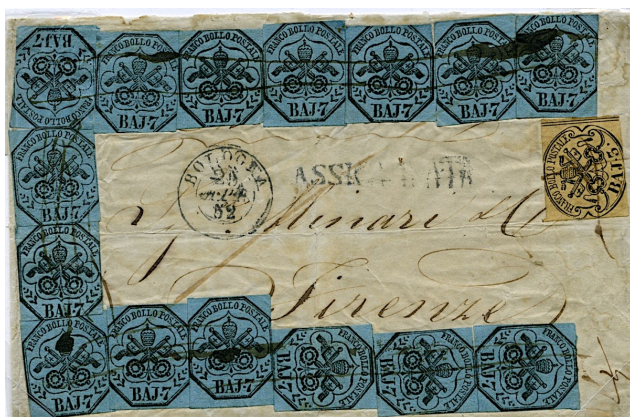 FRANCO BOLLO POSTALE BAJ·7
FRANCO BOLLO POSTALE BAJ·7
FRANCO BOLLO POSTALE BAJ·7
FRANCO BOLLO POSTALE BAJ·7
FRANCO BOLLO POSTALE BAJ·7
FRANCO BOLLO POSTALE BAJ·7
FRANCO BOLLO POSTALE BAJ·7
FRANCO BOLLO POSTALE BAJ·5
FRANCO BOLLO POSTALE BAJ·7
BOLOGNA
25
52
Minari
Firenze
FRANCO BOLLO POSTALE BAJ·7
FRANCO BOLLO POSTALE BAJ·7
FRANCO BOLLO POSTALE BAJ·7
FRANCO BOLLO POSTALE BAJ·7
FRANCO BOLLO POSTALE BAJ·7
FRANCO BOLLO POSTALE BAJ·7
FRANCO BOLLO POSTALE BAJ·7